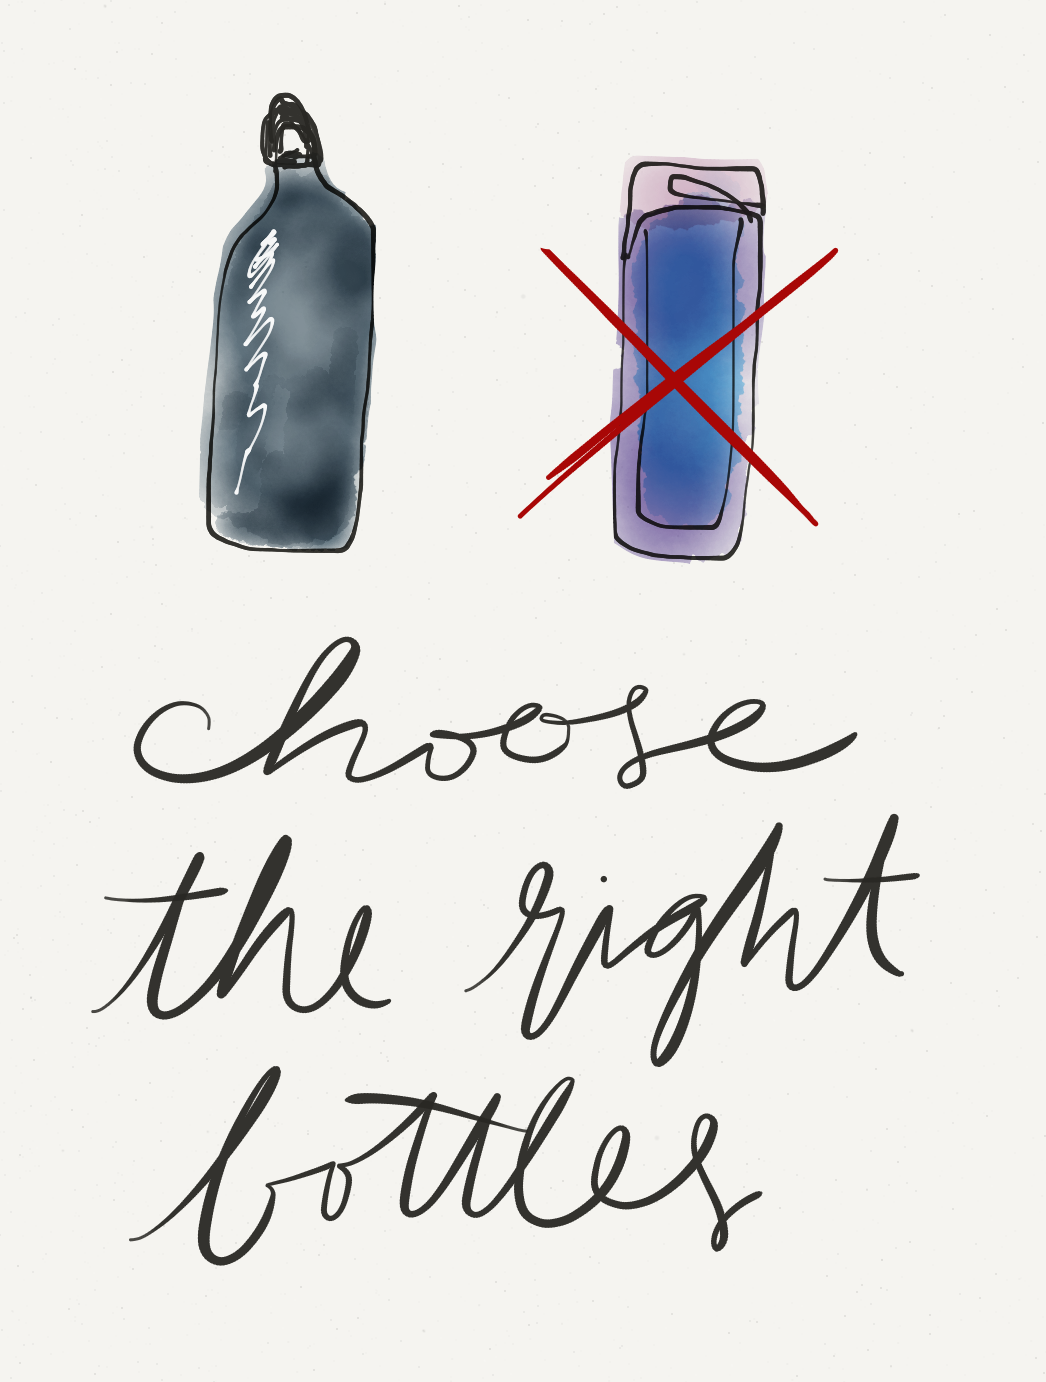 choose
the right
bottles